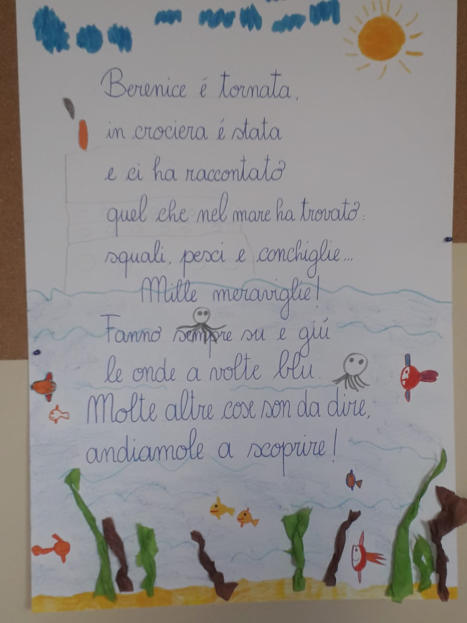 Berenice é tornata,
in crociera é stata
e ci ha raccontato
quel che nel mare ha trovato:
squali, pesci e conchiglie...
Mille meraviglie!
Fanno sempre su e giú
le onde a volte blu
Molte altre cose son da dire,
andiamole a scoprire!